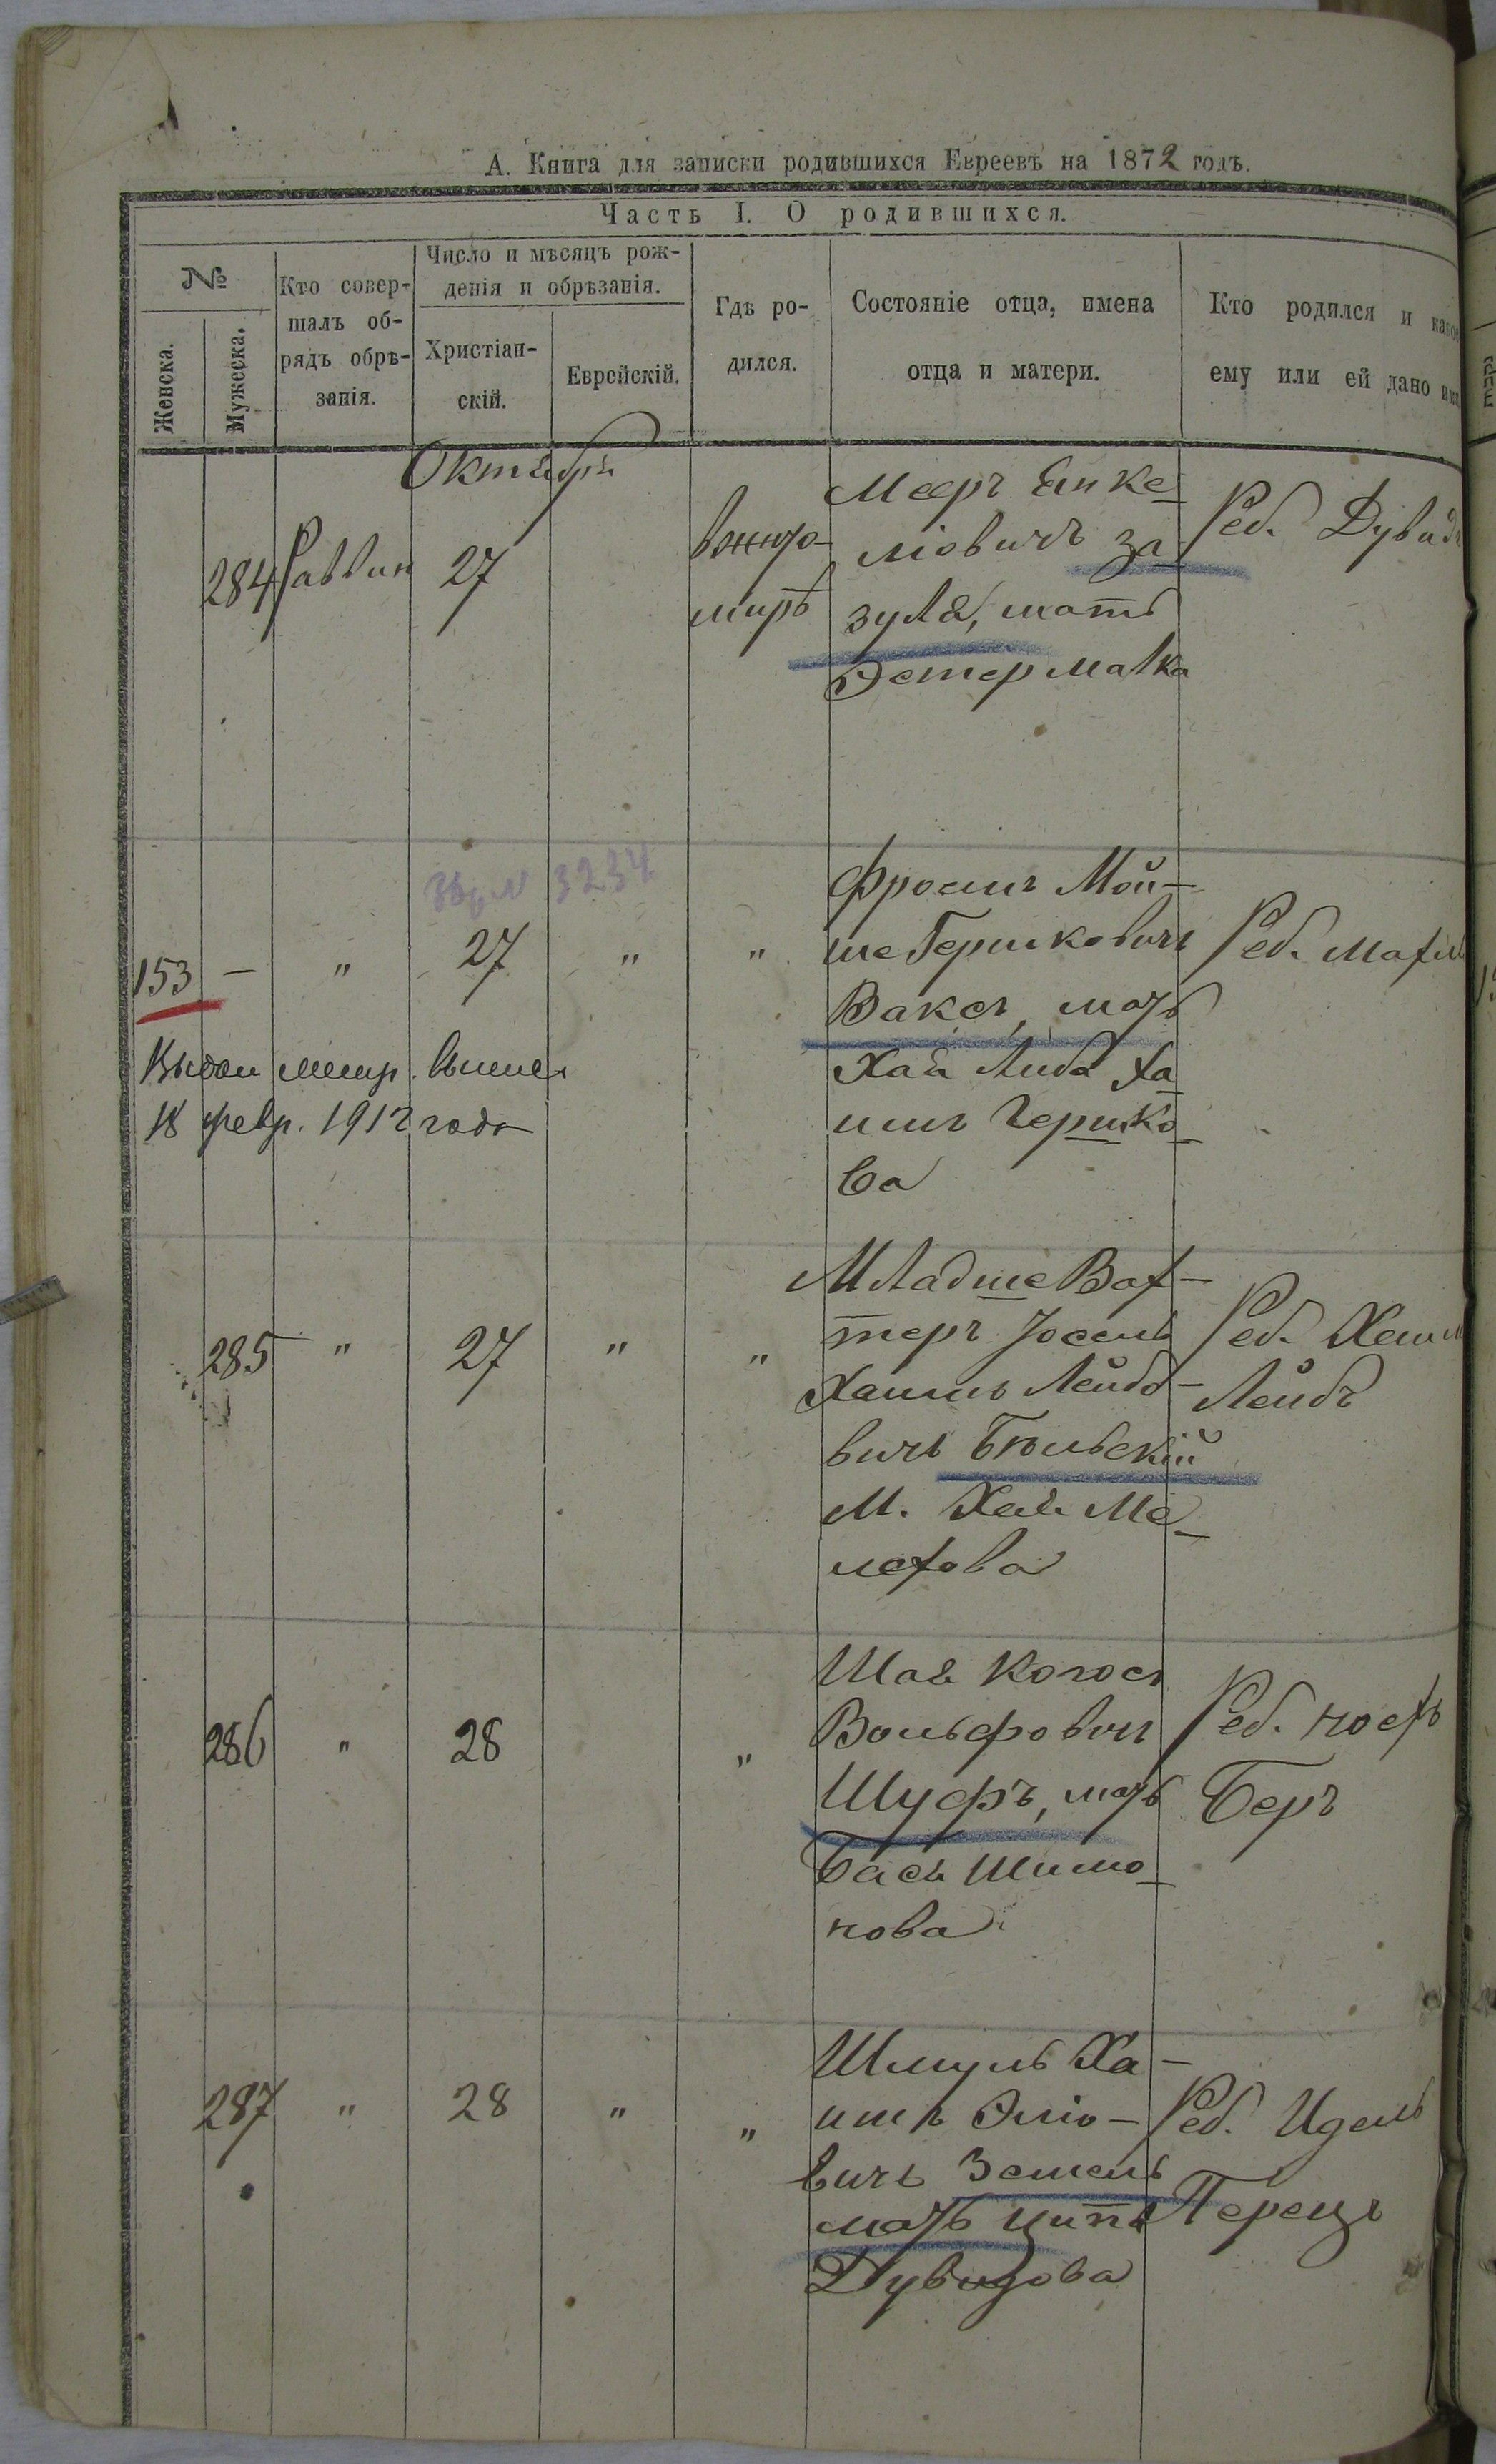 А. Книга для записки родившихся Евреевъ на 1872 годъ.
Часть I. О родившихся.
№
Женска.
Мужеска.
Кто совер-
шалъ об-
рядъ обрѣ-
занія.
Число и мѣсяцъ рож-
денія и обрѣзанія.
Христіан-
скій.
Еврейскій.
Гдѣ ро-
дился.
Состояніе отца, имена
отца и матери.
Кто родился и какое
ему или ей дано имя
Октября
284 Раввин 27
Мееръ Янке-
ліовичъ За
зуля, мать
Эстер Малка
Реб. Дувидъ
3234
153 — " 27 " "
Фроимъ Мой-
ше Гершковичъ
Ваксъ, мать
Хая Либа Ха
имъ Гершко-
ва
Реб.
метр.
18 февр. 1912 года
285 " 27 " "
Младше Вах-
теръ Іосель
Хаимъ Лейбо-
вичъ Бѣльскій
М. Хая Ме-
лехова
Реб.
Лейбъ
286 " 28 "
Шая
Вольфовичъ
Шуфъ, мать
Бася Шимо-
нова
Реб.
Беръ
287 " 28 " "
Шмуль Ха-
имъ Эліо-
вичъ Земель
мать Ципа
Дувидова
Реб. Идель
Перецъ